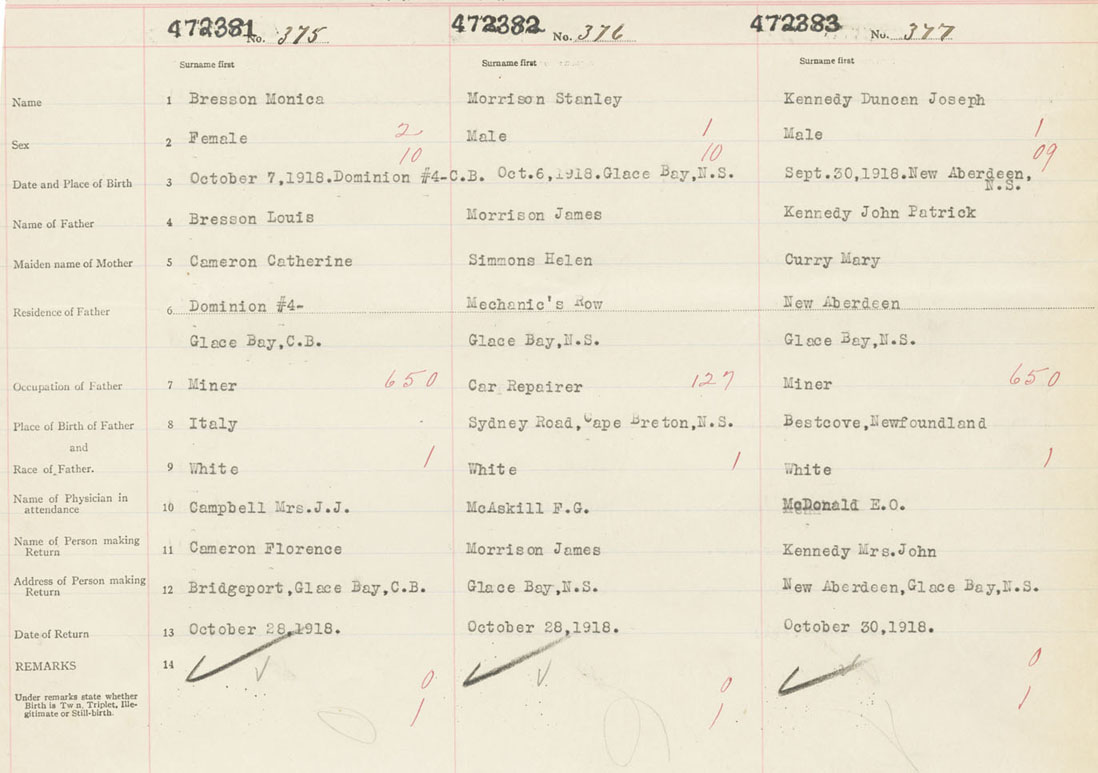 472381 No. 375 472382 No. 376 472383 No. 377
Surname first Surname first Surname first
Name 1 Bresson Monica Morrison Stanley Kennedy Duncan Joseph
Sex 2 Female 2 Male 1 Male 1
10 10 09
Date and Place of Birth 3 October 7,1918.Dominion #4-C.B. Oct.6,1918.Glace Bay,N.S. Sept.30,1918.New Aberdeen,
N.S.
Name of Father 4 Bresson Louis Morrison James Kennedy John Patrick
Maiden name of Mother 5 Cameron Catherine Simmons Helen Curry Mary
Residence of Father 6 Dominion #4- Mechanic's Row New Aberdeen
Glace Bay,C.B. Glace Bay,N.S. Glace Bay,N.S.
Occupation of Father 7 Miner 650 Car Repairer 127 Miner 650
Place of Birth of Father 8 Italy Sydney Road,Cape Breton,N.S. Bestcove,Newfoundland
and
Race of Father. 9 White 1 White 1 White 1
Name of Physician in
attendance 10 Campbell Mrs.J.J. McAskill F.G. McDonald E.O.
Name of Person making
Return 11 Cameron Florence Morrison James Kennedy Mrs.John
Address of Person making
Return 12 Bridgeport,Glace Bay,C.B. Glace Bay,N.S. New Aberdeen,Glace Bay,N.S.
Date of Return 13 October 28,1918. October 28,1918. October 30,1918.
REMARKS 14
0 0 0
Under remarks state whether
Birth is Tw n, Triplet, Ille-
gitimate or Still-birth.
1 1 1